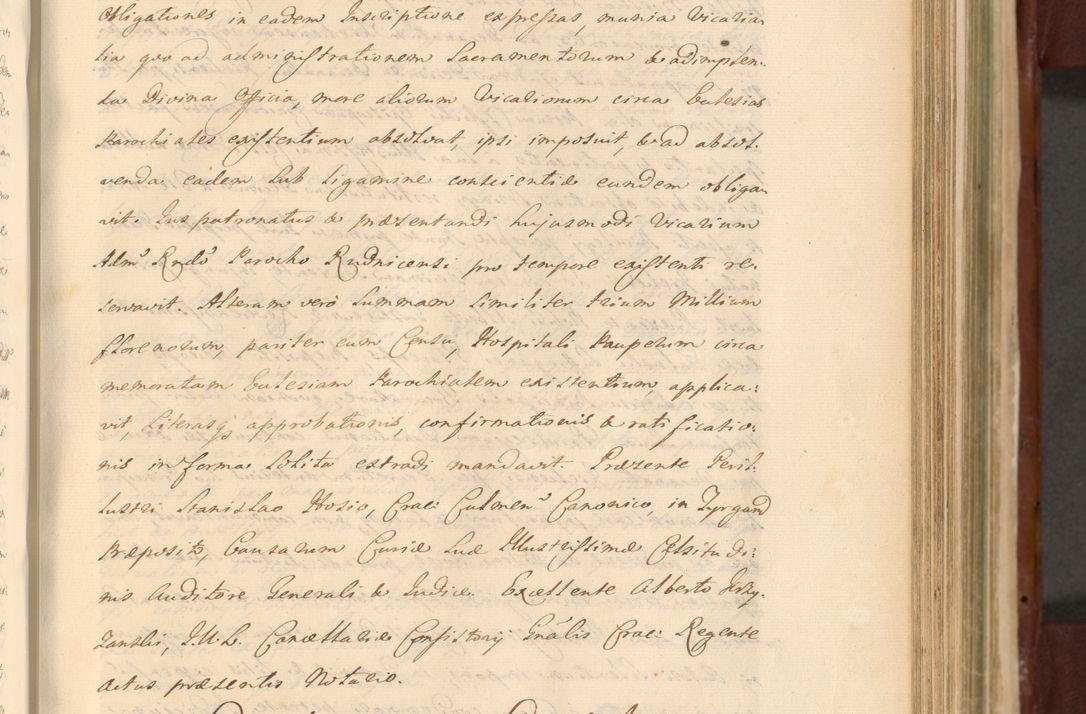 Obligationes in eadem Inscriptione expressas, munia Vicaria-
lia quo ad administrationem Sacramentorum & adimplen-
da Divina Officia, more aliorum Vicariorum circa Ecclesias
Parochiales existentium absolvat, ipsi imposuit, & ad absol-
venda eadem sub ligamine conscientiæ eundem obliga-
vit. Jus patronatus & præsentandi hujusmodi Vicarium
Admo Rndo Parocho Rudnicensi pro tempore existenti re-
servavit. Alteram verò Summam similiter trium Millium
florenorum, pariter cum Censu, Hospitali Pauperum circa
memoratam Ecclesiam Parochialem existentium, applica-
vit, Literasq approbationis, confirmationis & ratificatio-
nis in forma solita extradi mandavit. Præsente Peril-
lustri Stanislao Hosio, Crac: Culmen Canonico, in Zyrgand
Præposito, Causarum Curiæ Suæ Illustrissimæ Celsitudi-
nis Auditore Generali & Judice. Excellente Alberto
J.U.L. Cancellariæ Consistorij Gnälis Crac: Regente
Actus præsentis Notario.